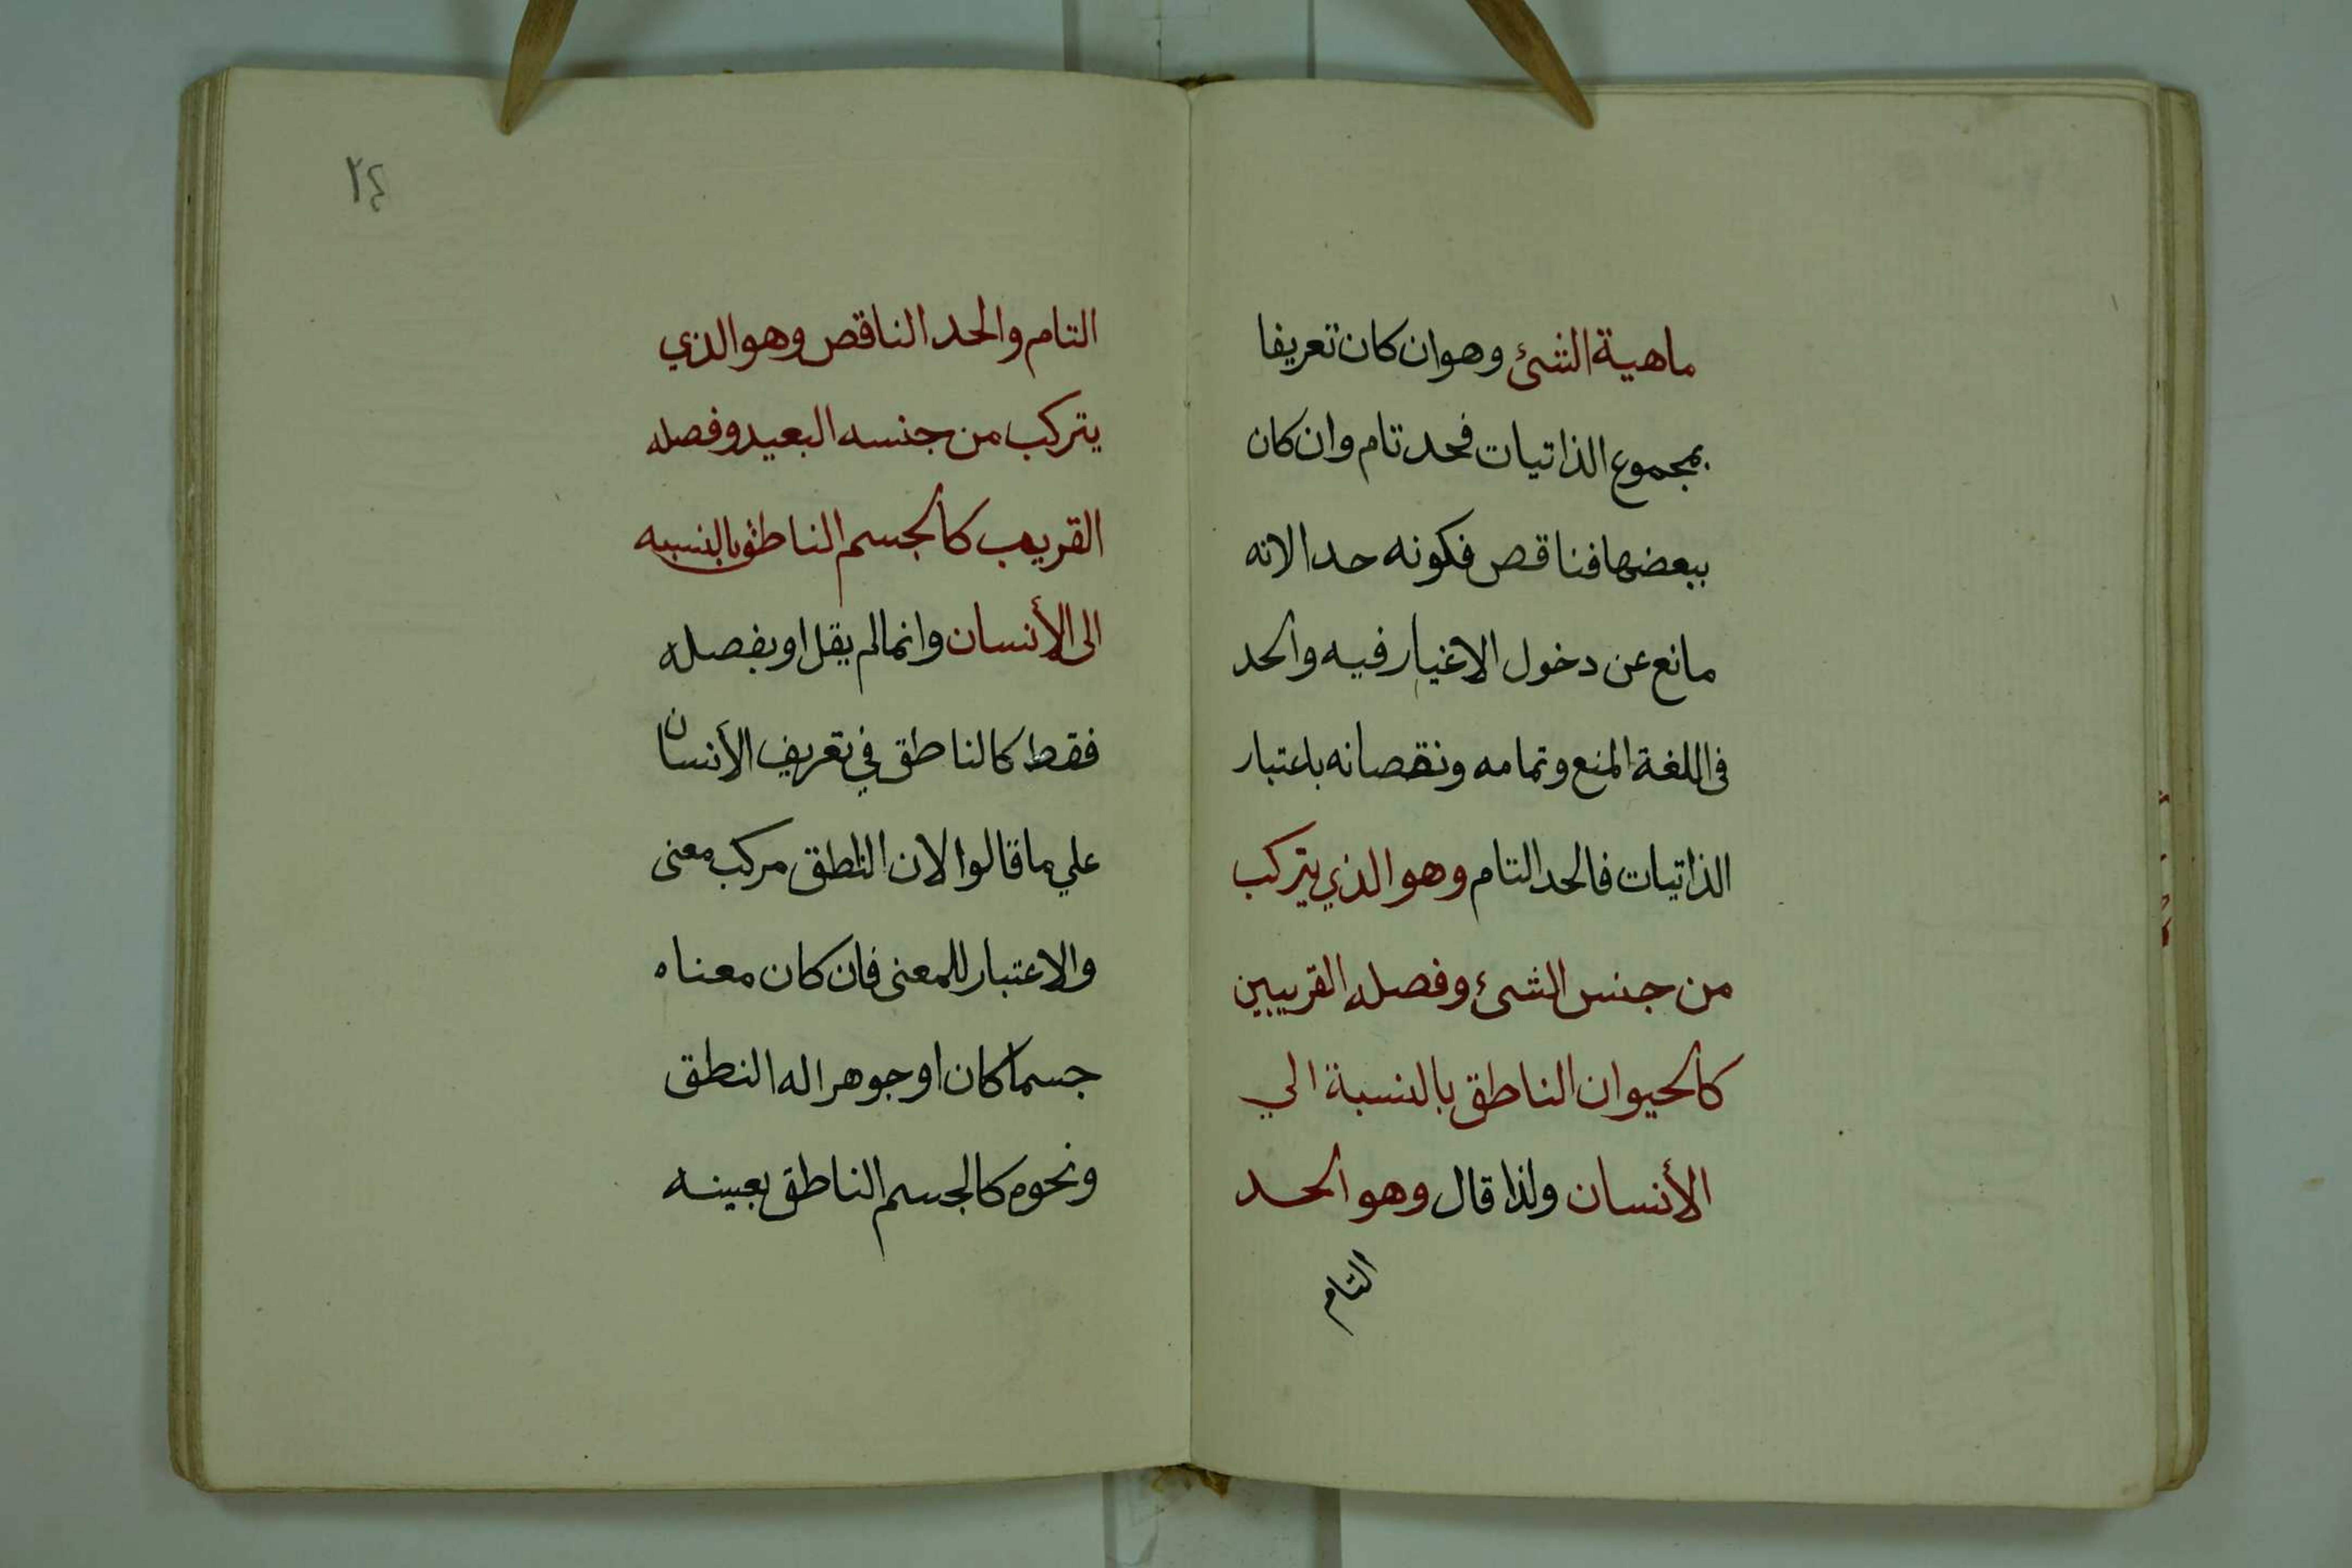 ماهية الشئ وهو ان كان تعريفا
بمجموع الذاتيات فحد تام وان كان
ببعضها فناقص فكونه حدا لانه
مانع عن دخول الاغيار فيه والحد
فى اللغة المنع وتمامه ونقصانه باعتبار
الذاتيات فالحد التام وهو الذي يتركب
من جنس الشئ وفصله القريبين
كالحيوان الناطق بالنسبة الي
الأنسان ولذا قال وهو الحد
التام
٢٤
التام والحد الناقص وهو الذي
يتركب من جنسه البعيد وفصله
القريب كالجسم الناطق بالنسبه
الى الأنسان وانما لم يقل او بفصله
فقط كالناطق في تعريف الأنسان
علي ما قالوا لان الناطق مركب معنى
والاعتبار للمعنى فان كان معناه
جسما كان او جوهرا له النطق
ونحوه كالجسم الناطق بعينه